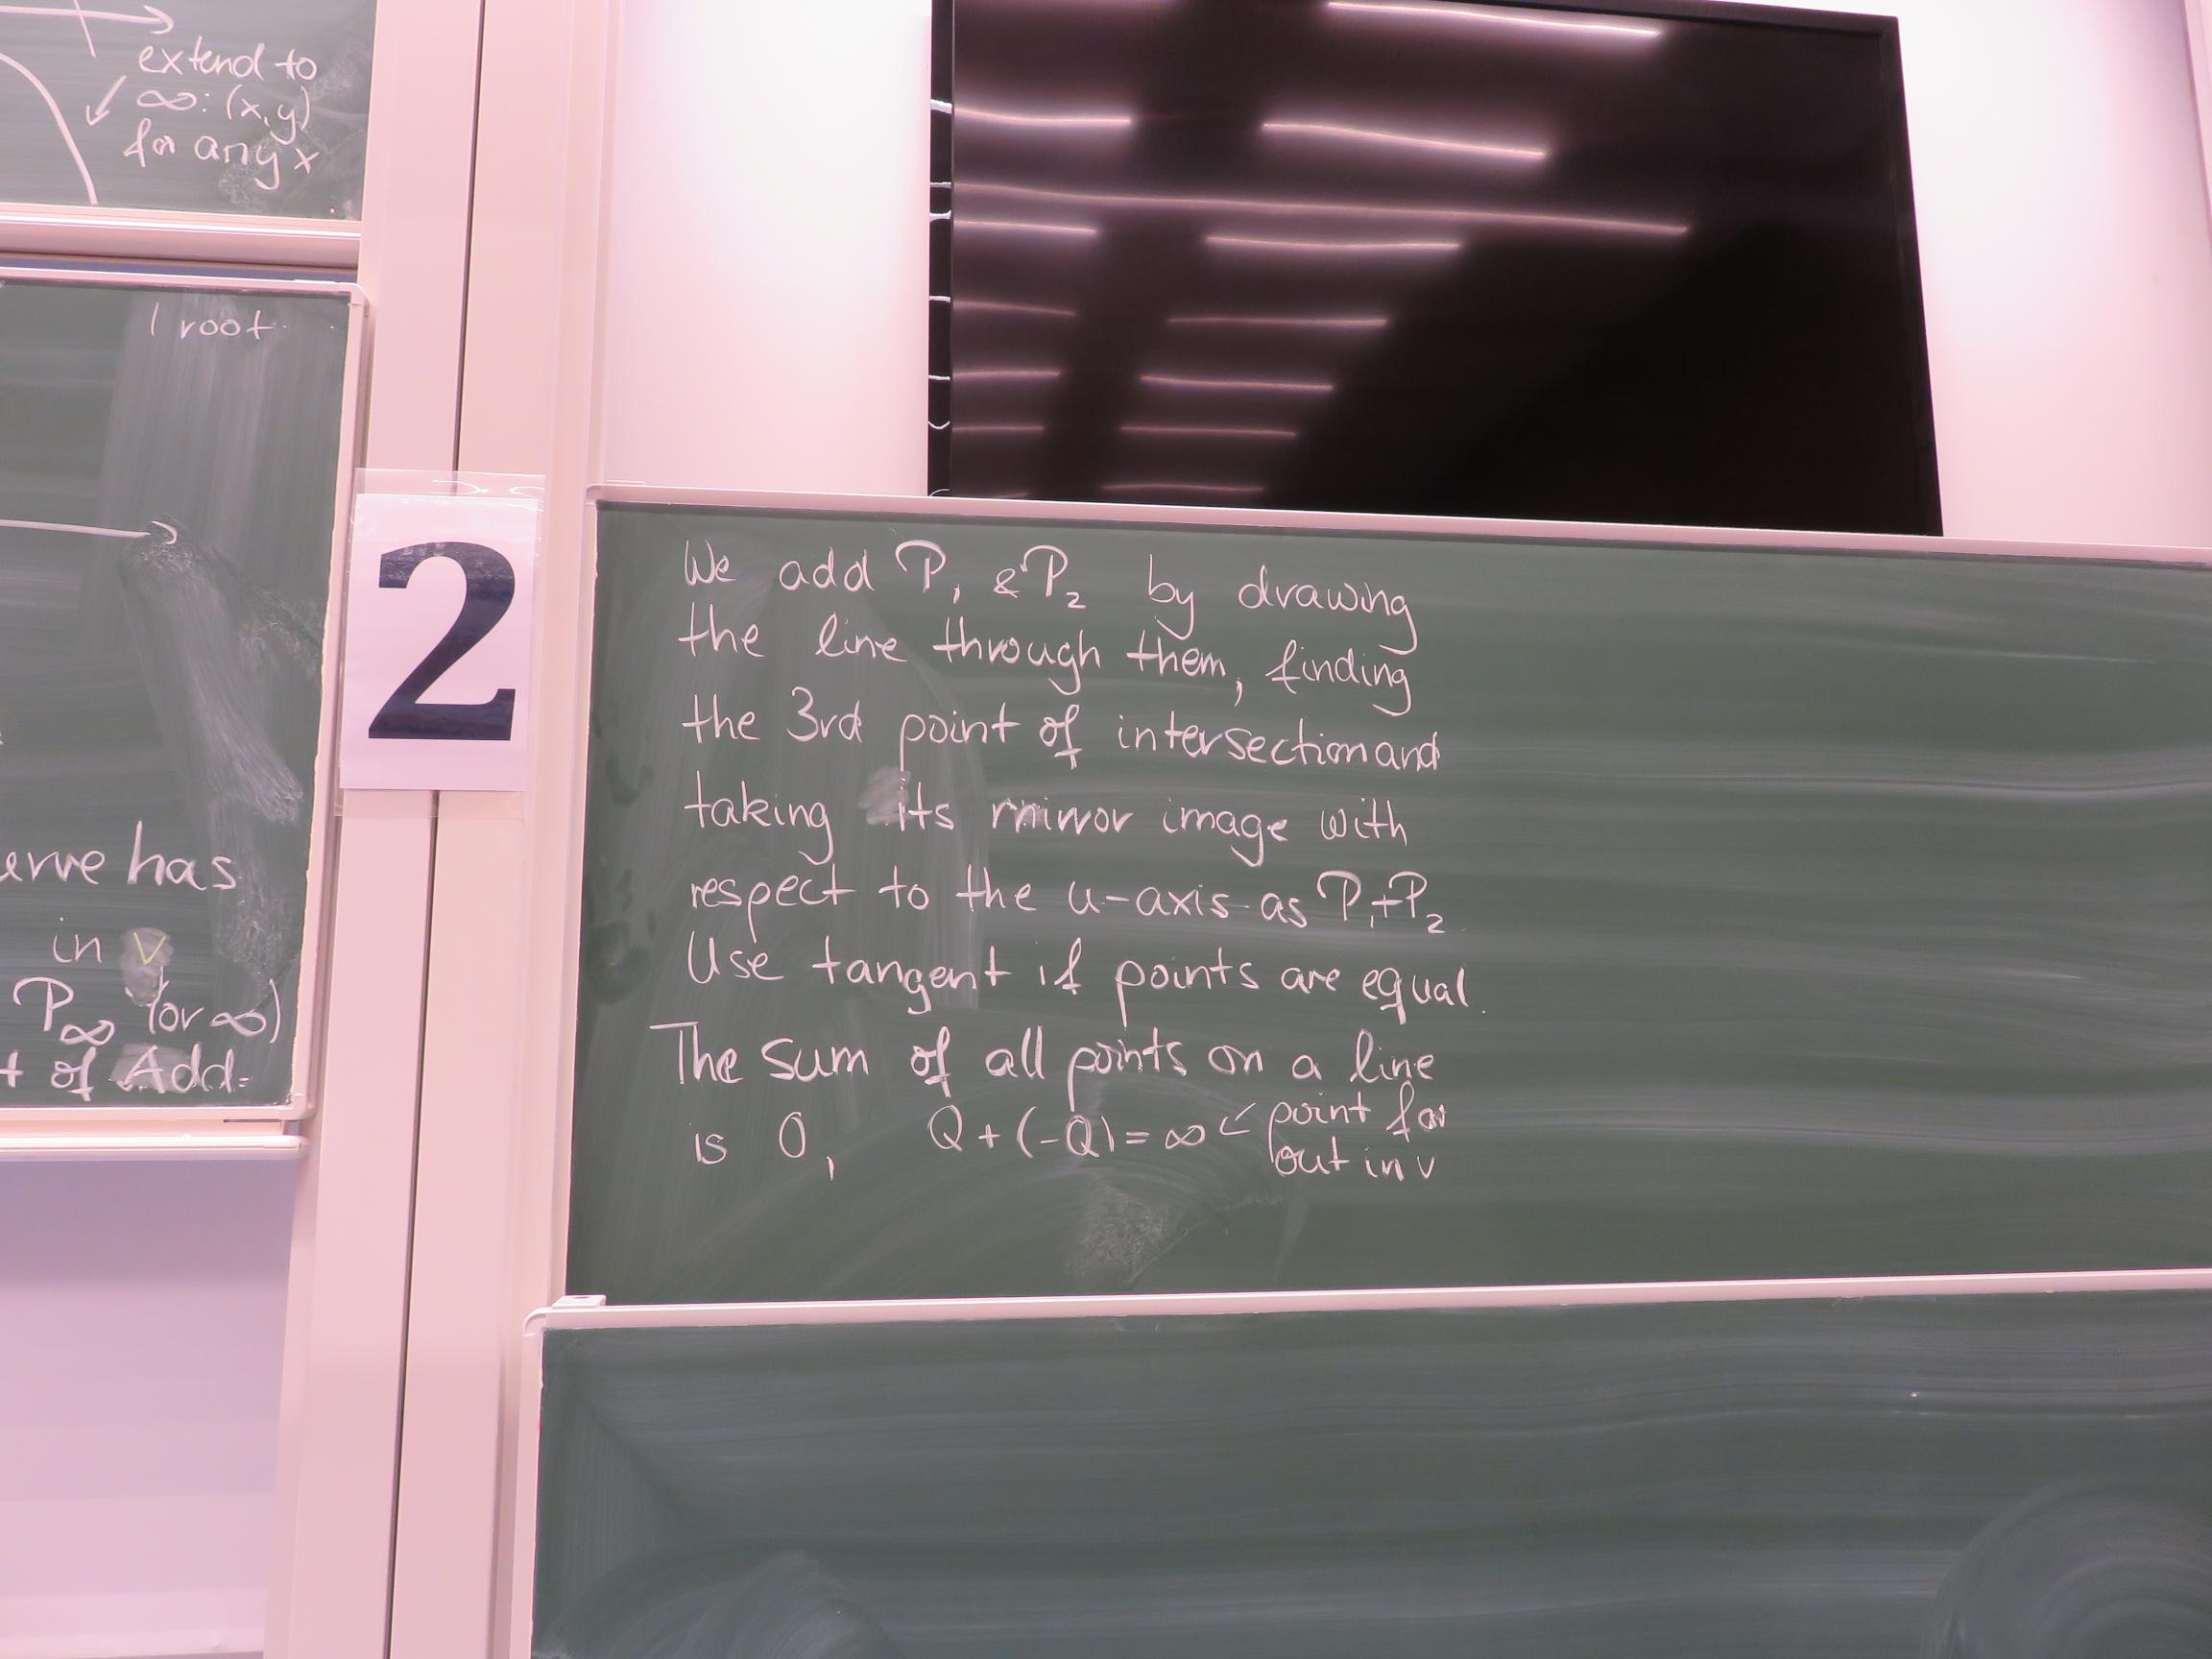 extend to
∞: (x,y)
for any x
1 root
erve has
in v
P∞ (or ∞)
t of Add-
2
We add P₁ & P₂ by drawing
the line through them, finding
the 3rd point of intersection and
taking its mirror image with
respect to the u-axis as P₁+P₂
Use tangent if points are equal.
The sum of all points on a line
is 0, Q+(-Q)=∞ ← point far
out in v